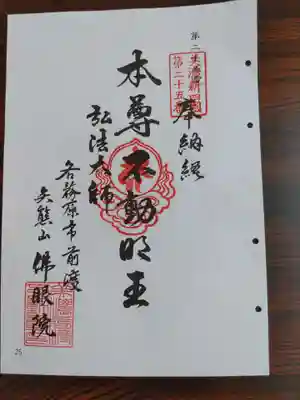 奉納経
本尊不動明王
弘法大師
各務原市前渡
矢熊山 佛眼院
25